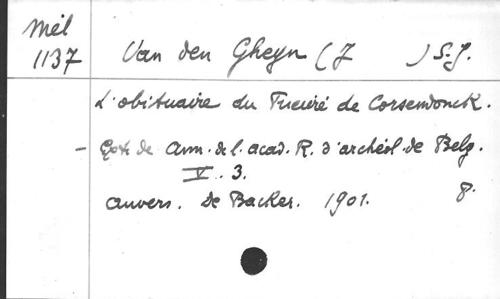 Mél
1137
Van den Gheyn (J ) S.J.
L'obituaire du Prieuré de Corsendonck.
- Extr. de Ann. de l. acad. R. d'archéol. de Belg.
V. 3.
Anvers. De Backer. 1901. 8.